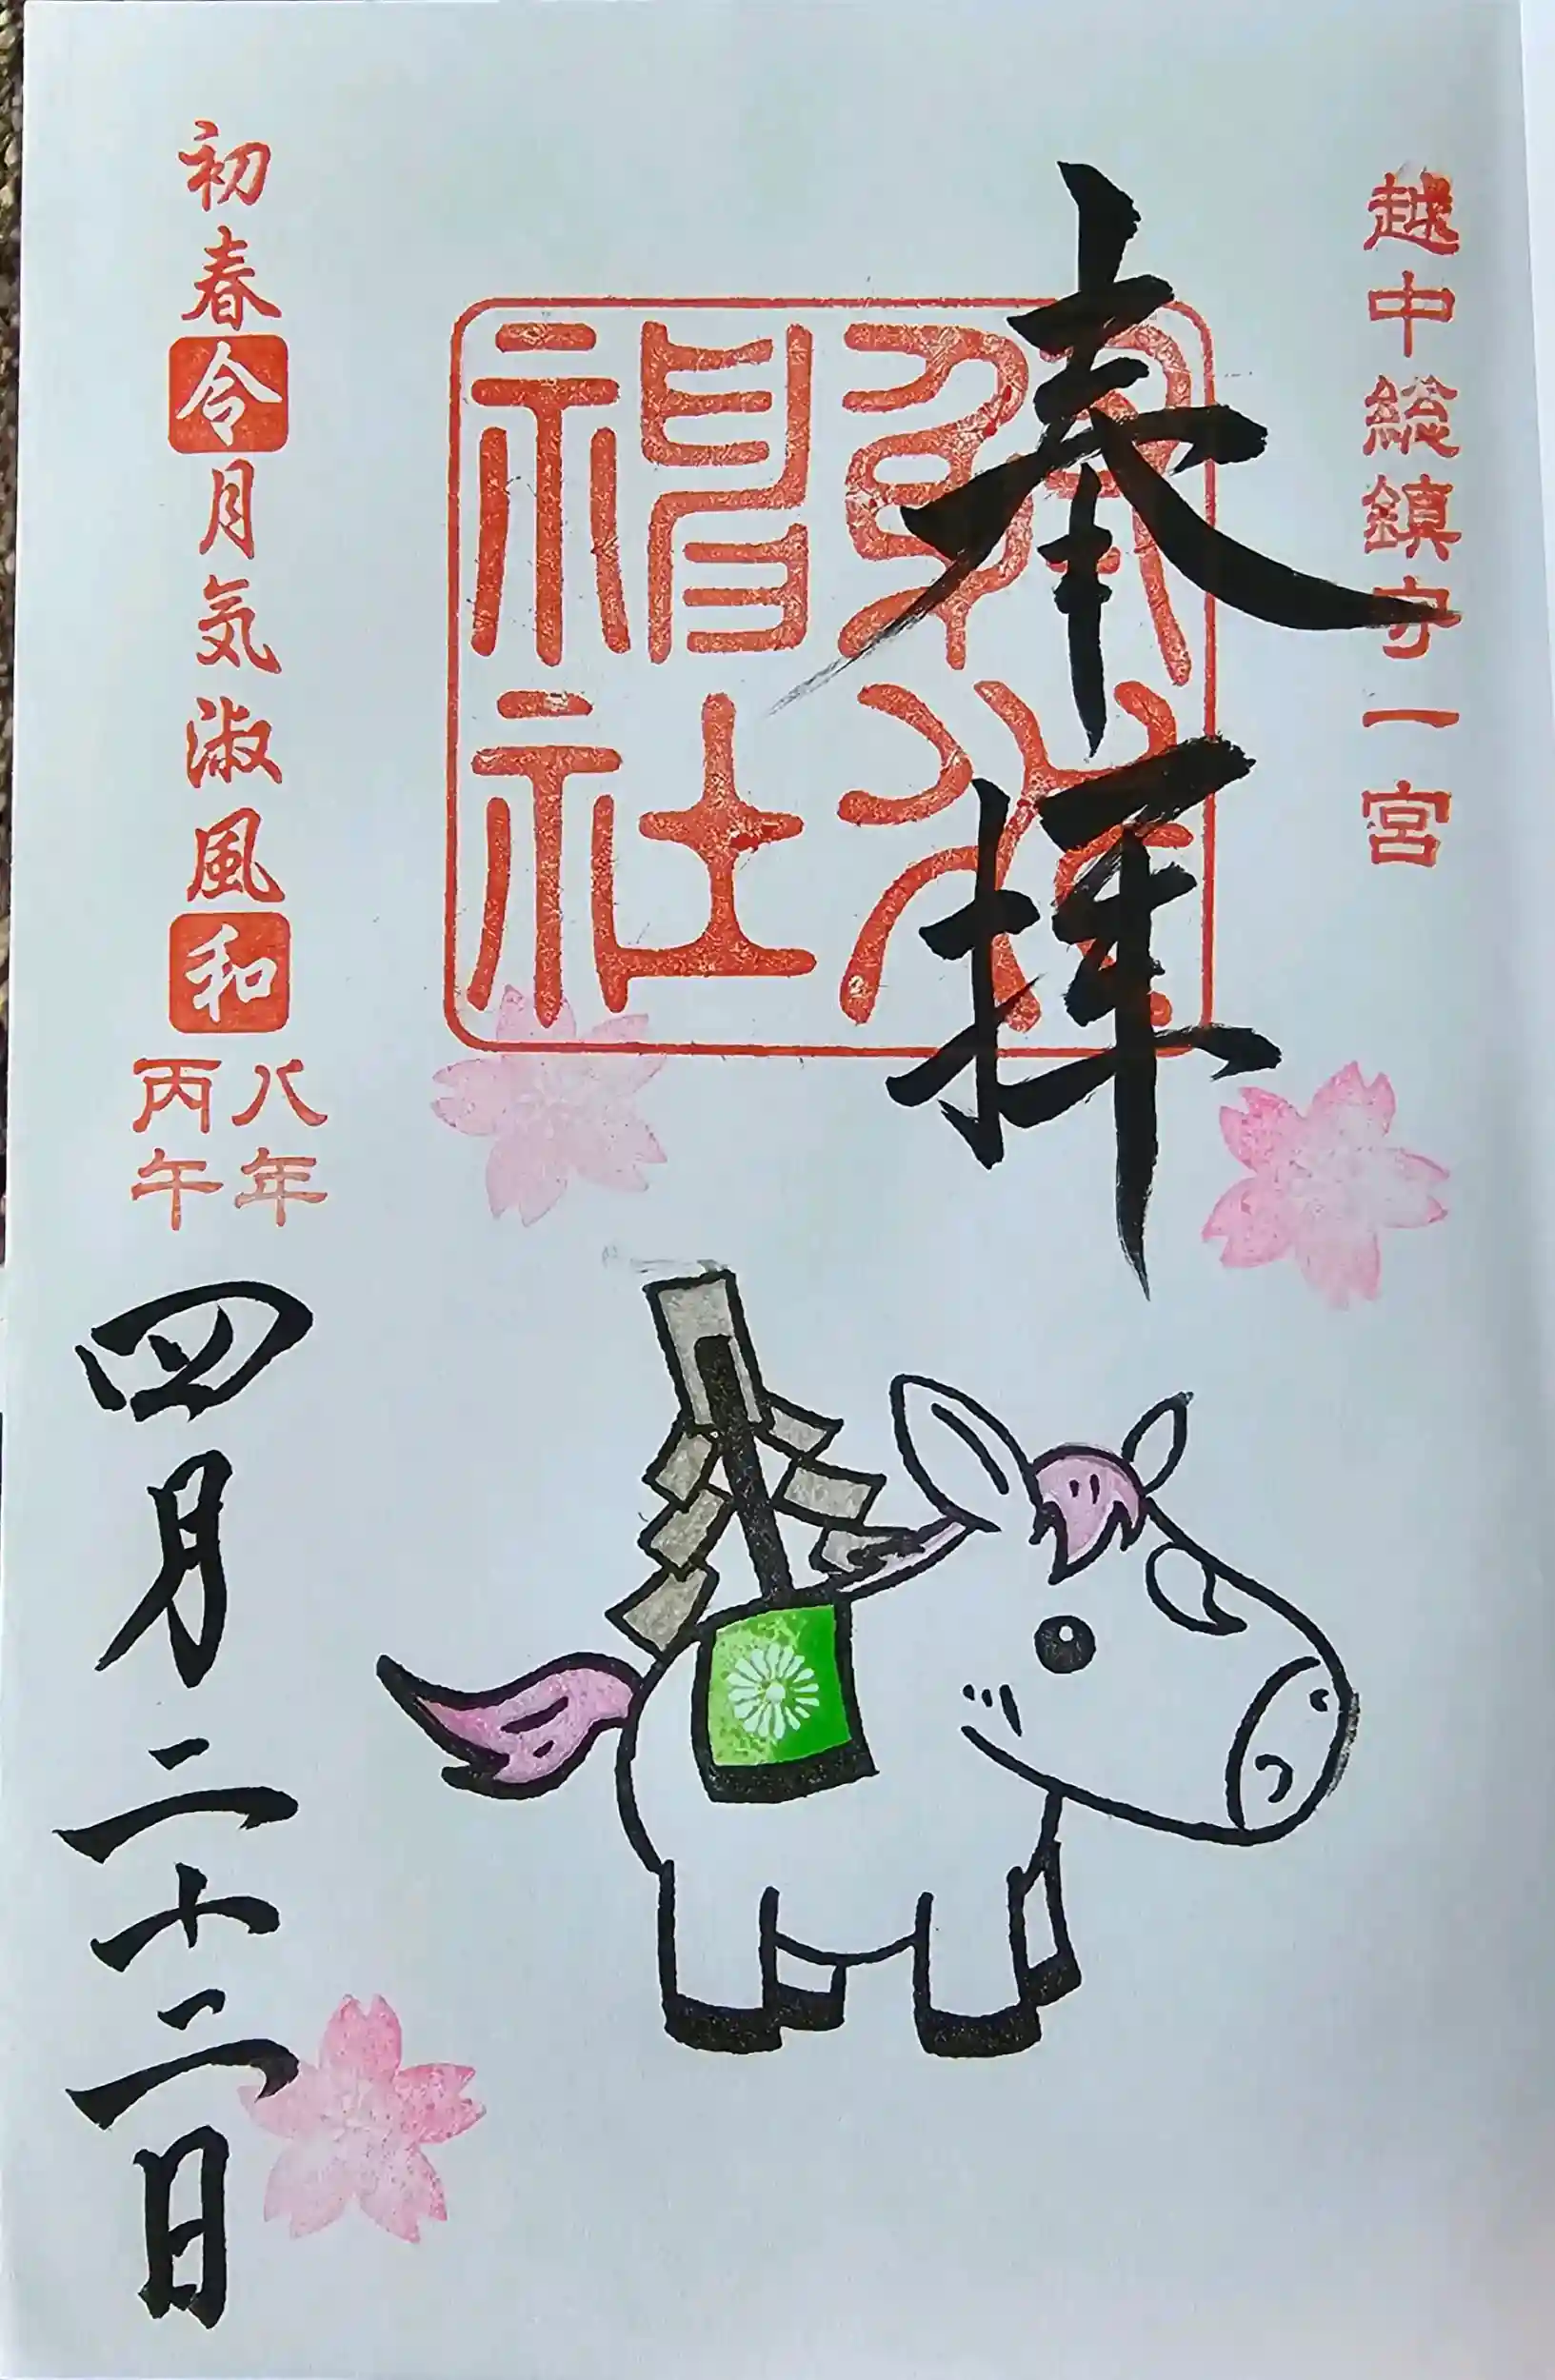 越中総鎮守一宮
奉拝
射水神社
初春令月気淑風和
八年
丙午
四月二十二日